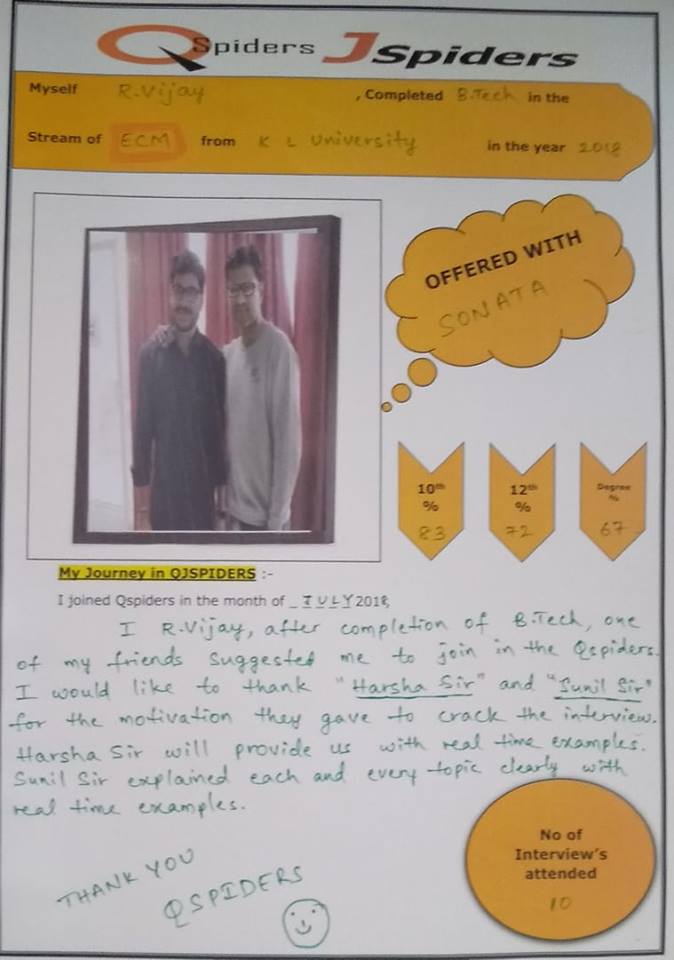 QSpiders JSpiders
Myself R.Vijay , Completed B.Tech in the
Stream of ECM from K L University in the year 2018
OFFERED WITH
SONATA
10th
%
83
12th
%
72
Degree
%
67
My Journey in QJSPIDERS :-
I joined Qspiders in the month of _JULY 2018,
I R.Vijay, after completion of B.Tech, one
of my friends suggested me to join in the Qspiders.
I would like to thank "Harsha Sir" and "Sunil Sir"
for the motivation they gave to crack the interview.
Harsha Sir will provide us with real time examples.
Sunil Sir explained each and every topic clearly with
real time examples.
THANK YOU
QSPIDERS
No of
Interview's
attended
10